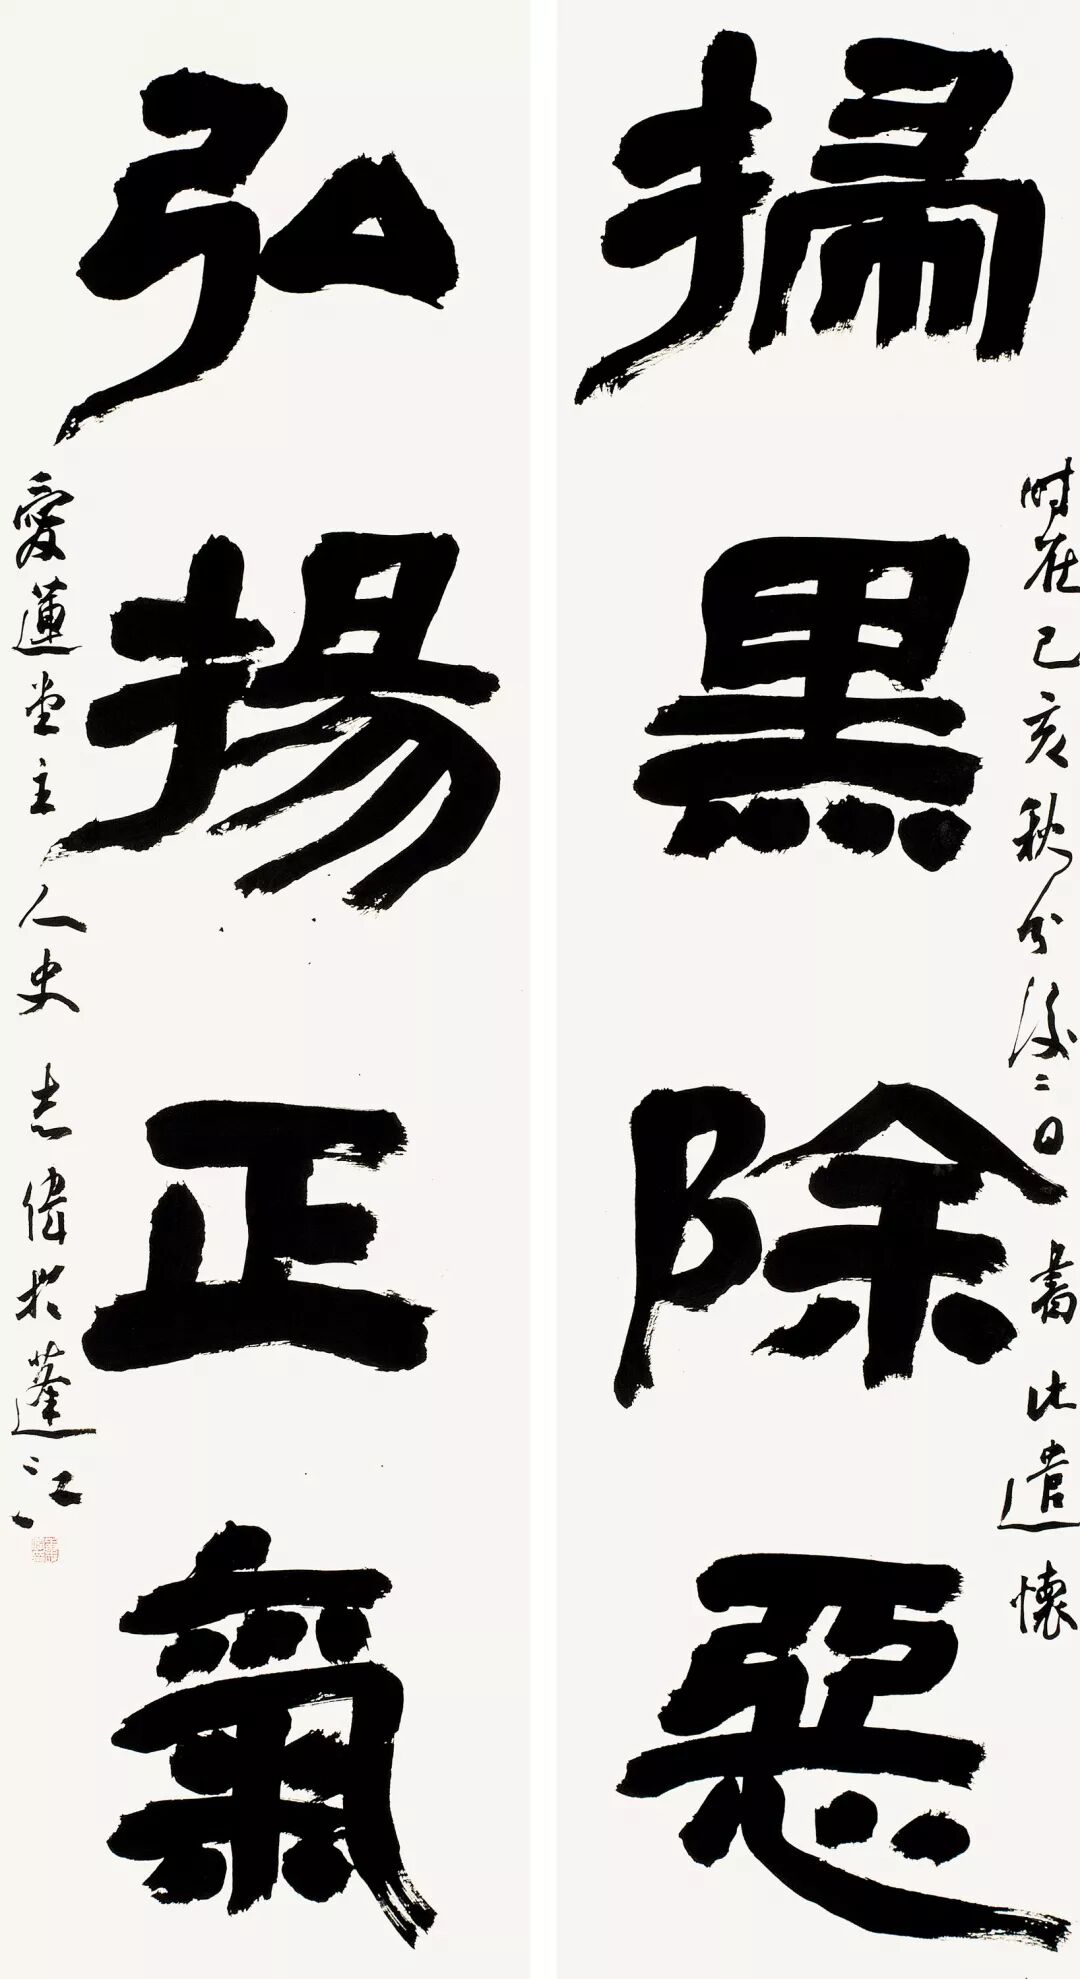 时在己亥秋分後二日書此遣懷
掃黑除惡
弘揚正氣
愛蓮堂主人史志偉於蓬江